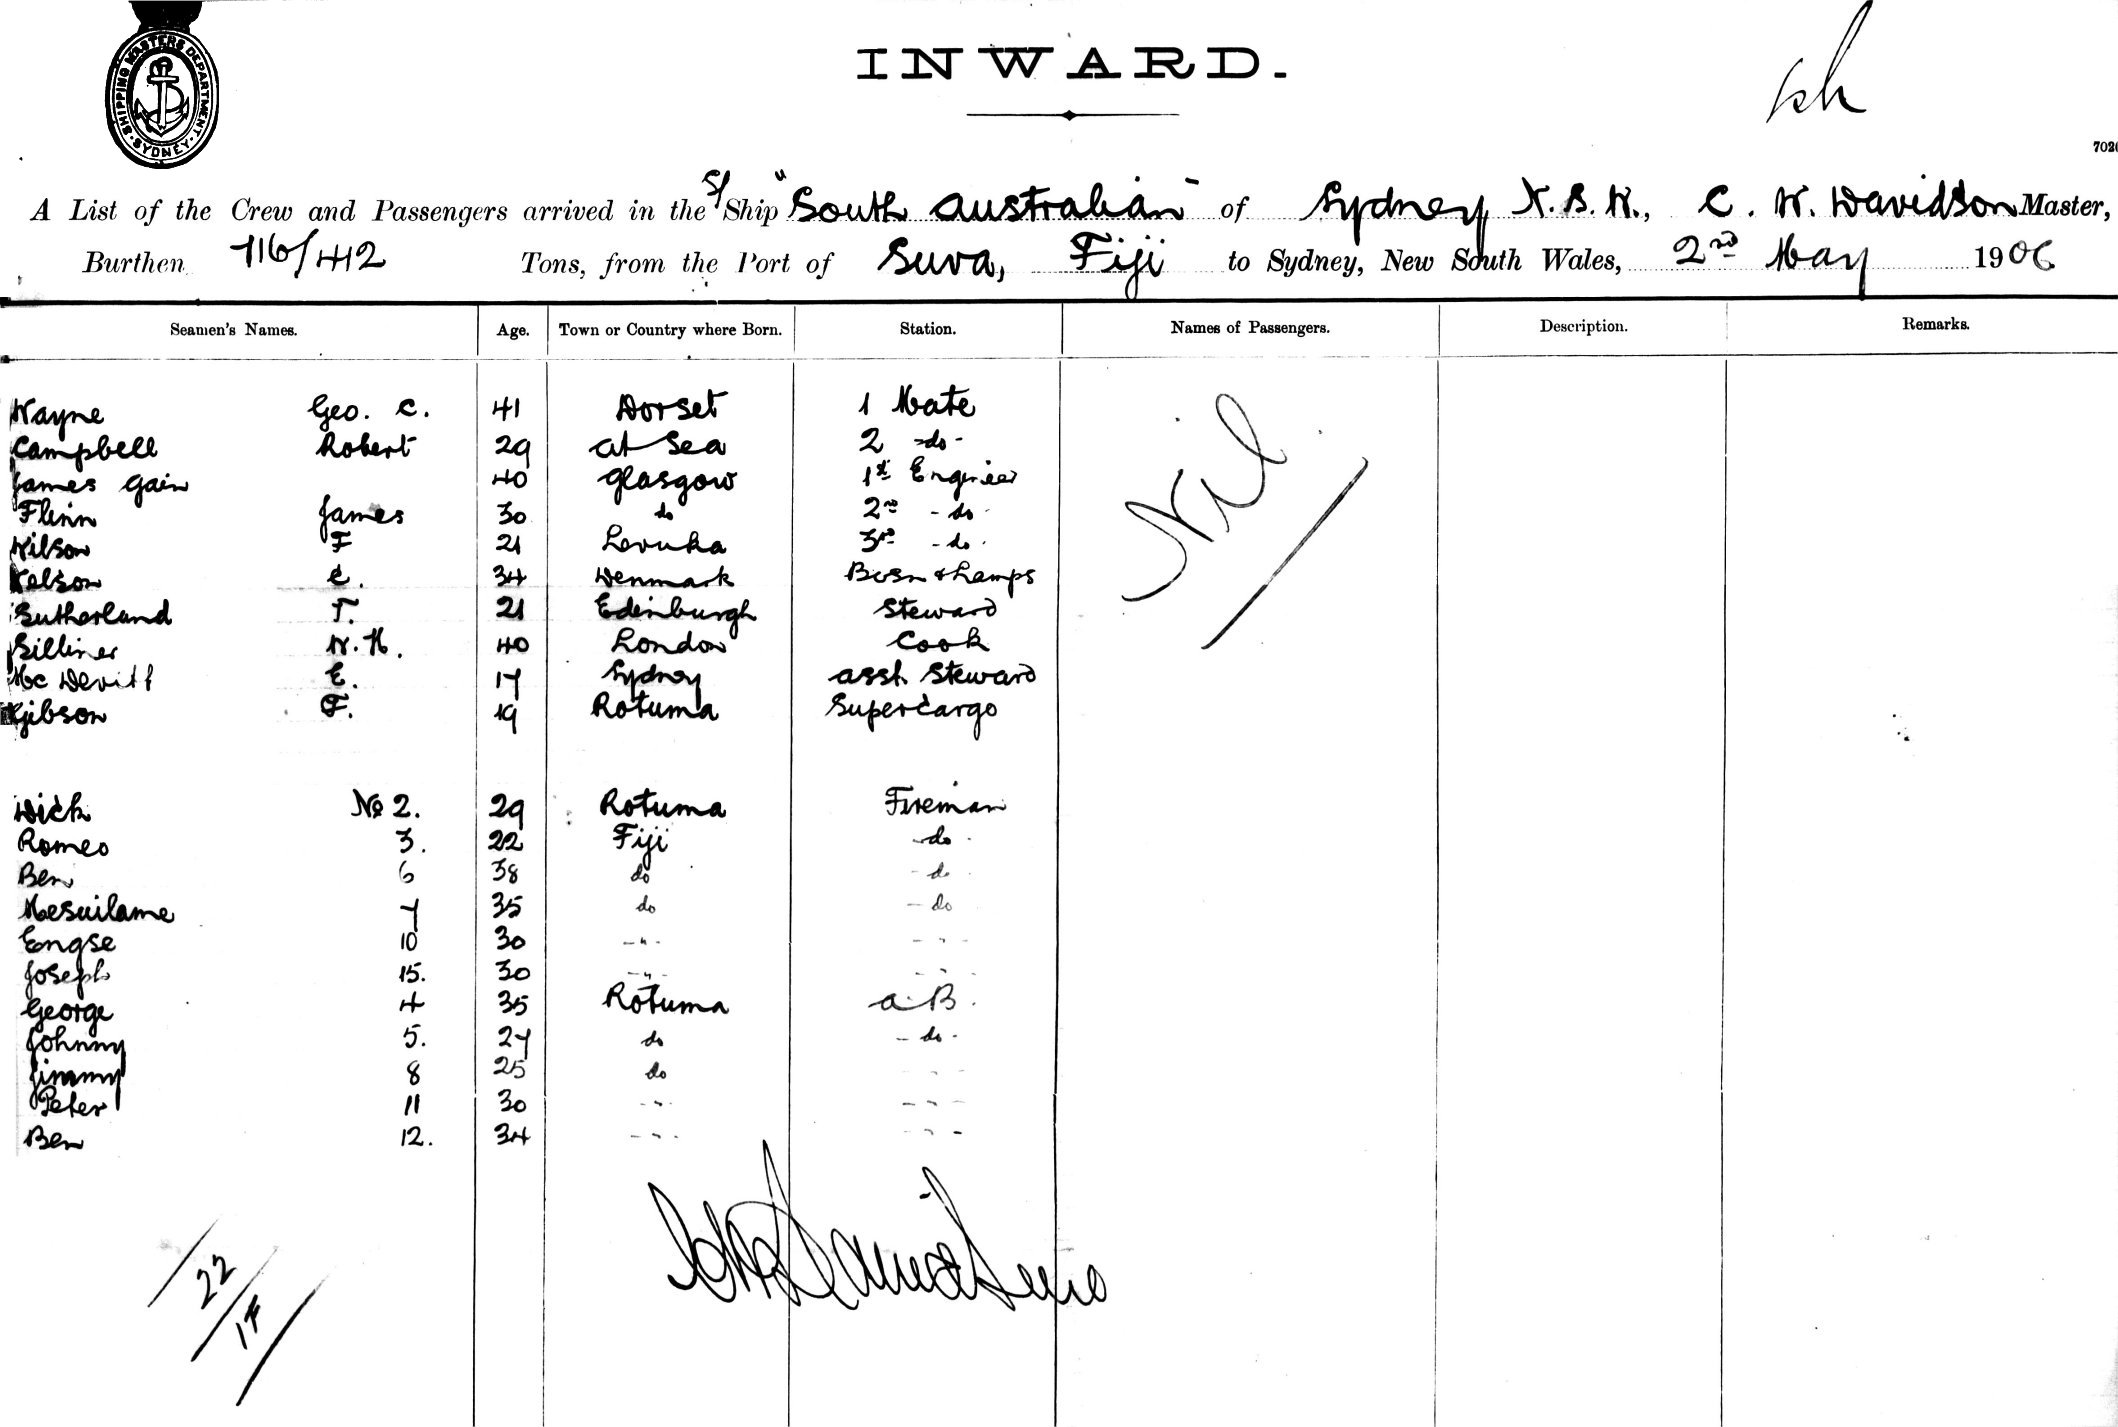 SHIPPING MASTERS DEPARTMENT · SYDNEY ·
INWARD.
7020
A List of the Crew and Passengers arrived in the S/ Ship "South Australian" of Sydney N.S.W., C. W. Davidson Master,
Burthen 716/412 Tons, from the Port of Suva, Fiji to Sydney, New South Wales, 2nd May 1906
Seamen's Names. Age. Town or Country where Born. Station. Names of Passengers. Description. Remarks.
Wayne Geo. C. 41 Dorset 1 Mate
Campbell Robert 29 at Sea 2 -do-
James Gain 40 Glasgow 1st Engineer
Flinn James 30 do 2nd -do-
Wilson F 21 Levuka 3rd -do-
Nelson C. 34 Denmark Bosn & Lamps
Sutherland T. 21 Edinburgh Steward
W.H. 40 London Cook
McDevitt E. 17 Sydney asst. Steward
Gibson F. 19 Rotuma Supercargo
Nil
Dick No 2. 29 Rotuma Fireman
Romeo 3. 22 Fiji -do-
Ben 6 38 do -do
Mesuilame 7 35 do -do
Engse 10 30 -"- -"-
Joseph 15. 30 -"- -"-
George 4 35 Rotuma a.B.
Johnny 5. 27 do -do-
Jimmy 8 25 do -"-
Peter 11 30 -"- -"-
Ben 12. 34 -"- -"-
22
14